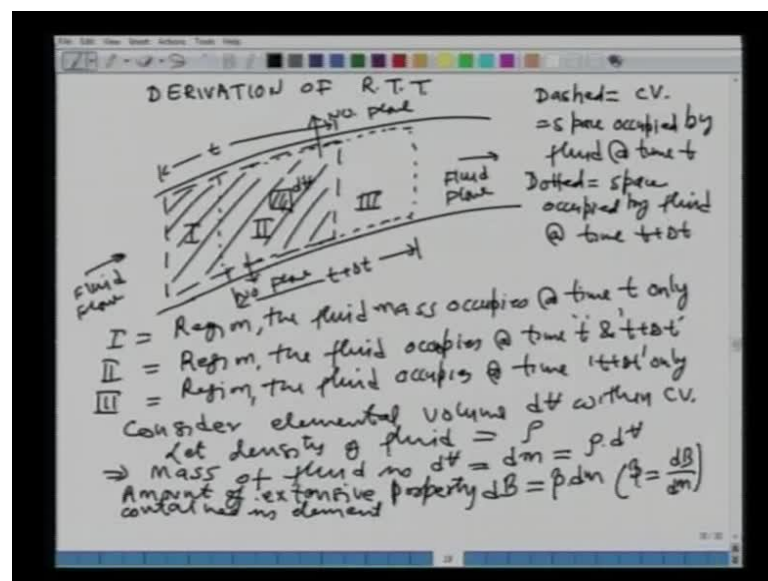 File Edit View Insert Actions Tools Help
DERIVATION OF R.T.T
Dashed = CV.
= space occupied by
fluid @ time t
Dotted = space
occupied by fluid
@ time t+Δt
no plane
t
I
II
d∀
III
Fluid
plane
Fluid
flow
no plane
t+Δt
I = Region, the fluid mass occupies @ time t only
II = Region, the fluid occupies @ time 't' & 't+Δt'
III = Region, the fluid occupies @ time 't+Δt' only
Consider elemental volume d∀ within CV.
Let density of fluid = ρ
⇒ Mass of fluid in d∀ = dm = ρ.d∀
Amount of extensive property dB = β.dm (β = dB/dm)
contained in element